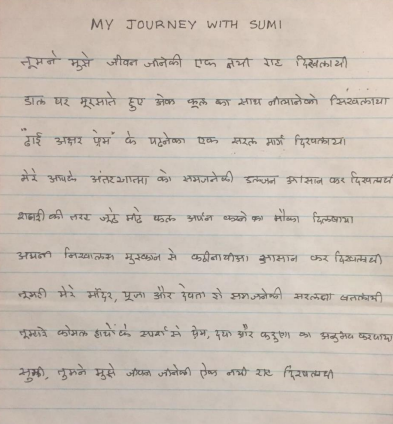 MY JOURNEY WITH SUMI
तूमने मुझे जीवन जीनेकी एक नयी राह दिखलायी
डाल पर मूरझाते हुए एक फूल का साथ सिखलाया
"ढाई अक्षर प्रेम" के पढ़नेका एक सरल मार्ग दिखलाया
मेरे आपके अंतरआत्मा को समजनेकी उलजन आसान कर दिखलायी
शबरी की तरह जूठे मीठे फल अर्पन करने का मौका दिलवाया
अपनी मुस्कान से आसान कर दिखलायी
तूमही मेरे मंदिर, पूजा और देवता हो समजनेकी सरलता
तूमारे कोमल हाथों के स्पर्श से प्रेम, दया और करुणा का अनुभव करवाया
सुमी, तुमने मुझे जीवन जीनेकी ऐक नयी राह दिखलायी